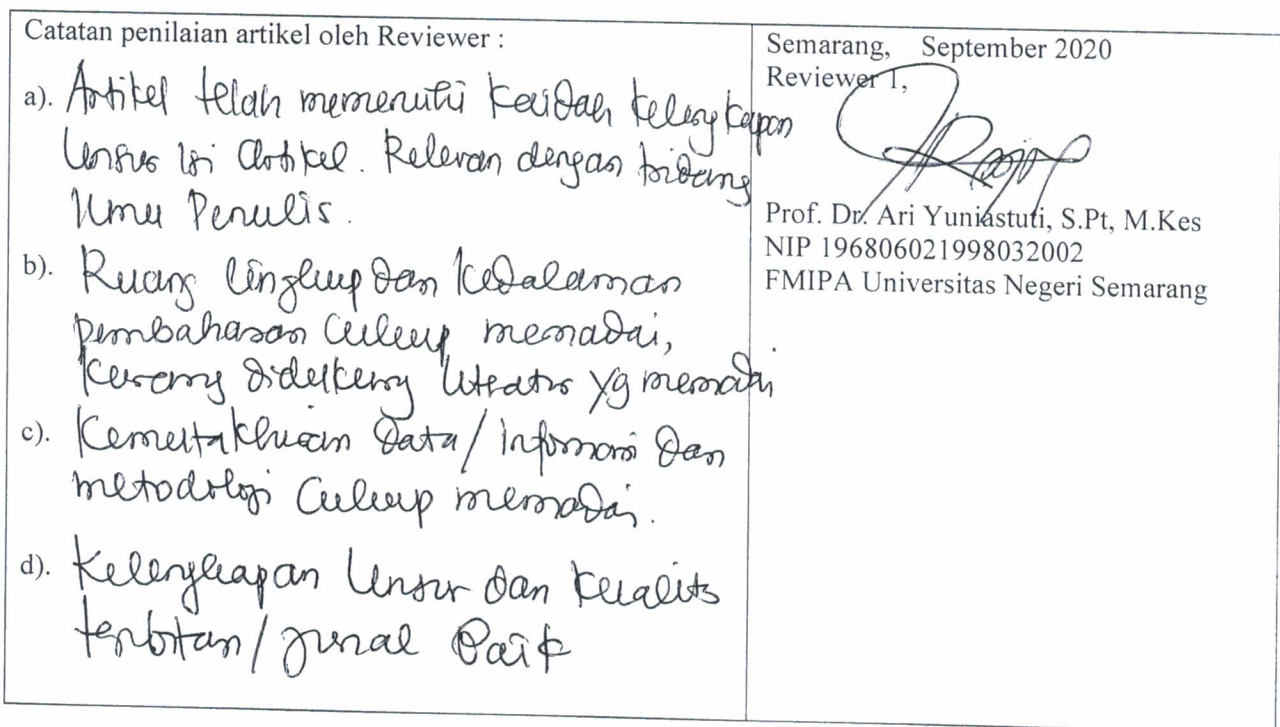 Catatan penilaian artikel oleh Reviewer :
a). Artikel telah memenuhi kaidah kelengkapan
unsur isi artikel. Relevan dengan bidang
Ilmu Penulis.
b). Ruang lingkup dan kedalaman
pembahasan cukup memadai,
kurang didukung literatur yg memadai
c). Kemutakhiran data/informasi dan
metodologi cukup memadai.
d). Kelengkapan unsur dan kualits
terbitan/jurnal Baik
Semarang, September 2020
Reviewer 1,
Prof. Dr. Ari Yuniastuti, S.Pt, M.Kes
NIP 196806021998032002
FMIPA Universitas Negeri Semarang